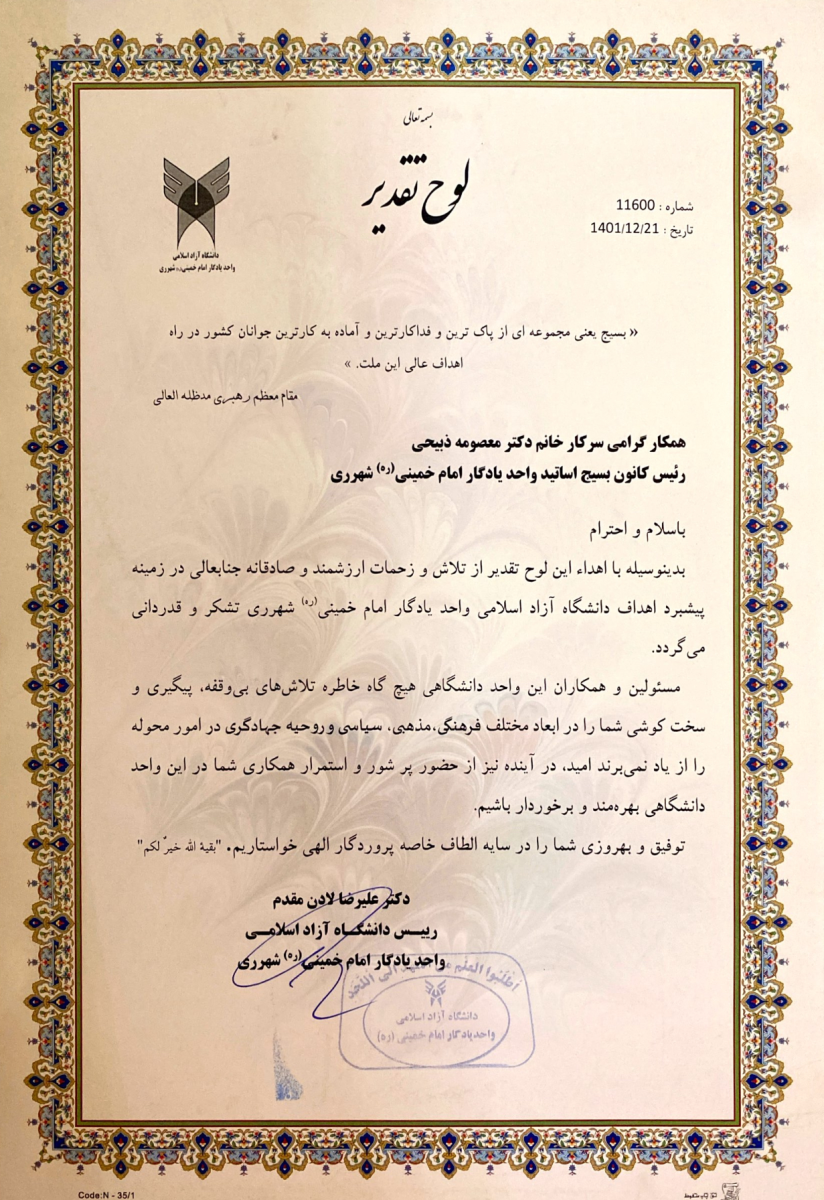 بسمه تعالی
لوح تقدیر
شماره : 11600
تاریخ : 1401/12/21
دانشگاه آزاد اسلامی
واحد یادگار امام خمینی(ره) شهرری
« بسیج یعنی مجموعه ای از پاک ترین و فداکارترین و آماده به کارترین جوانان کشور در راه
اهداف عالی این ملت. »
مقام معظم رهبری مدظله العالی
همکار گرامی سرکار خانم دکتر معصومه ذبیحی
رئیس کانون بسیج اساتید واحد یادگار امام خمینی(ره) شهرری
باسلام و احترام
بدینوسیله با اهداء این لوح تقدیر از تلاش و زحمات ارزشمند و صادقانه جنابعالی در زمینه
پیشبرد اهداف دانشگاه آزاد اسلامی واحد یادگار امام خمینی(ره) شهرری تشکر و قدردانی
می‌گردد.
مسئولین و همکاران این واحد دانشگاهی هیچ گاه خاطره تلاش‌های بی‌وقفه، پیگیری و
سخت کوشی شما را در ابعاد مختلف فرهنگی،مذهبی، سیاسی و روحیه جهادگری در امور محوله
را از یاد نمی‌برند امید، در آینده نیز از حضور پر شور و استمرار همکاری شما در این واحد
دانشگاهی بهره‌مند و برخوردار باشیم.
توفیق و بهروزی شما را در سایه الطاف خاصه پروردگار الهی خواستاریم. "بقیة الله خیرٌ لکم"
دکتر علیرضا لادن مقدم
رییس دانشگاه آزاد اسلامی
واحد یادگار امام خمینی(ره) شهرری
اطلبوا العلم من المهد الی اللحد
دانشگاه آزاد اسلامی
واحد یادگار امام خمینی (ره)
Code:N - 35/1